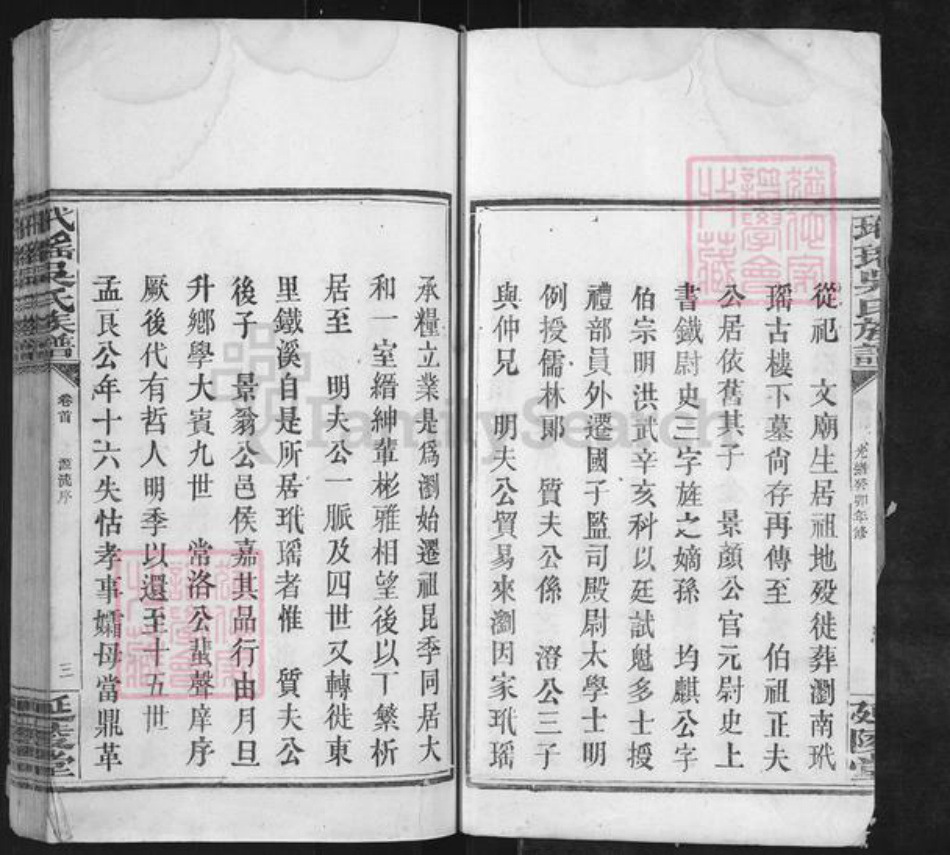 從祀 文廟生居祖地殁徙葬瀏南玳
瑤古樓下墓尙存再傳至 伯祖正夫
公居依舊其子 景顏公官元尉史上
書鐵尉史三字旌之嫡孫 均麒公字
伯宗明洪武辛亥科以廷試魁多士授
禮部員外遷國子監司殿尉太學士明
例授儒林郎 質夫公係 澄公三子
與仲兄 明夫公貿易來瀏因家玳瑤
光緒癸卯年修
承糧立業是爲瀏始遷祖昆季同居大
和一室縉紳輩彬雅相望後以丁繁析
居至 明夫公一脈及四世又轉徙東
里鐵溪自是所居玳瑤者惟 質夫公
後子 景翁公邑侯嘉其品行由月旦
升鄉學大賓九世 常洛公蜚聲庠序
厥後代有哲人明季以還至十五世
孟良公年十六失怙孝事孀母當鼎革
吳氏族譜
卷首
源流序
三
FamilySearch